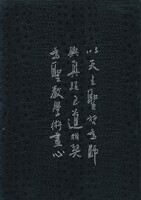 以天主聖哲為師
與真理之道相契
為聖教學術盡心